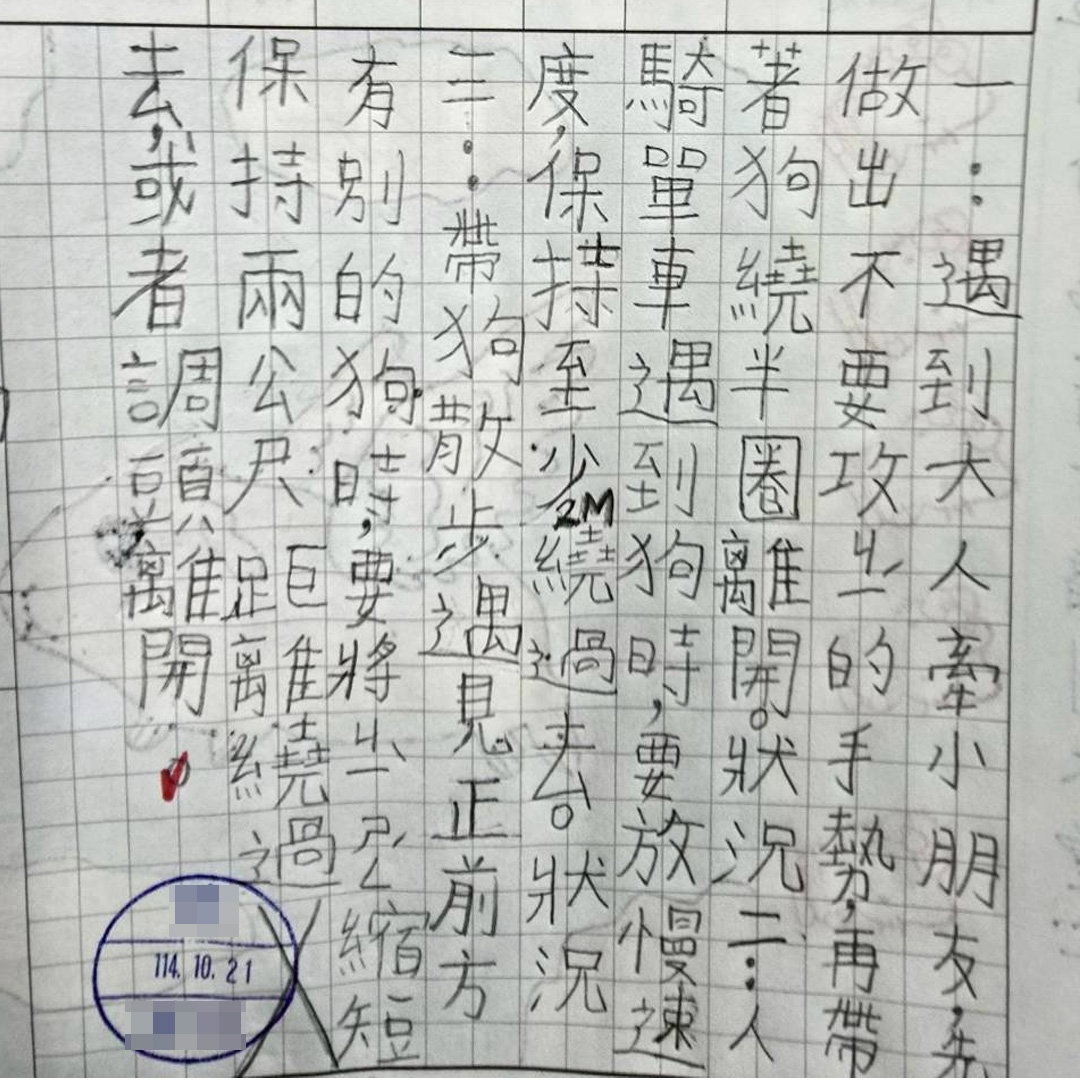 一：遇到大人牽小朋友，先
做出不要攻ㄐㄧ的手勢，再帶
著狗繞半圈離開。狀況二：人
騎單車遇到狗時，要放慢速
度，保持至少2M繞過去。狀況
三：帶狗散步遇見正前方
有別的狗時，要將縮短
保持兩公尺距離繞過
去，或者調頭離開。
114.10.21